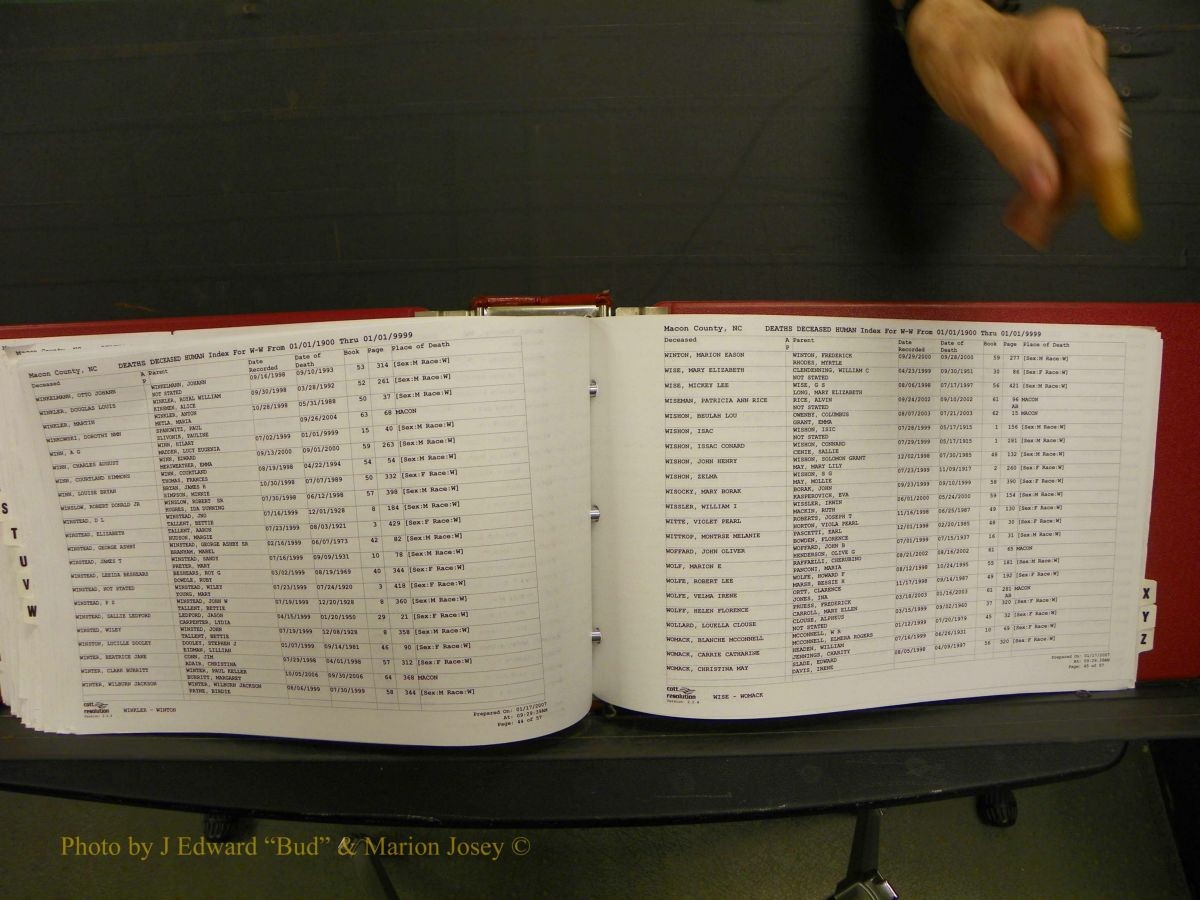 Macon County, NC DEATHS DECEASED HUMAN Index For W-W From 01/01/1900 Thru 01/01/9999
Deceased A P Parent Date Recorded Date of Death Book Page Place of Death
WINKELMANN, OTTO JOHANN WINKELMANN, JOHANN 09/16/1998 09/10/1993 53 314 [Sex:M Race:W]
NOT STATED
WINKLER, DOUGLAS LOUIS WINKLER, ROYAL WILLIAM 09/30/1998 03/28/1992 52 261 [Sex:M Race:W]
KINSMEN, ALICE
WINKLER, MARTIN WINKLER, ANTON 10/28/1998 05/31/1988 50 37 [Sex:M Race:W]
METLA, MARIA
WINKOWSKI, DOROTHY NMN SPANOWITI, PAUL 09/26/2004 63 68 MACON
SLIVONIK, PAULINE
WINN, A G WINN, HILARY 07/02/1999 01/01/9999 15 40 [Sex:M Race:W]
MADDEN, LUCY EUGENIA
WINN, CHARLES AUGUST WINN, EDWARD 09/13/2000 09/01/2000 59 263 [Sex:M Race:W]
MERIWEATHER, EMMA
WINN, COURTLAND SIMMONS WINN, COURTLAND 08/19/1998 04/22/1994 54 54 [Sex:M Race:W]
THOMAS, FRANCES
WINN, LOUISE BRYAN BRYAN, JAMES R 10/30/1998 07/07/1989 50 332 [Sex:F Race:W]
SIMPSON, MINNIE
WINSLOW, ROBERT DONALD JR WINSLOW, ROBERT SR 07/30/1998 06/12/1998 57 398 [Sex:M Race:W]
HUGHES, IDA DUNNING
WINSTEAD, D L WINSTEAD, JNO 07/16/1999 12/01/1928 8 184 [Sex:M Race:W]
TALLENT, BETTIE
WINSTEAD, ELIZABETH TALLENT, AARON 07/23/1999 08/03/1921 3 429 [Sex:F Race:W]
HUDSON, MARGIE
WINSTEAD, GEORGE ASHBY WINSTEAD, GEORGE ASHBY SR 02/16/1999 06/07/1973 42 82 [Sex:M Race:W]
BRANHAM, MABEL
WINSTEAD, JAMES T WINSTEAD, SANDY 07/16/1999 09/09/1931 10 78 [Sex:M Race:W]
PREYER, MARY
WINSTEAD, LEEIDA BESHEARS BESHEARS, ROY G 03/02/1999 08/19/1969 40 344 [Sex:F Race:W]
DOWDLE, RUBY
WINSTEAD, NOT STATED WINSTEAD, WILEY 07/23/1999 07/24/1920 3 418 [Sex:F Race:W]
YOUNG, MARY
WINSTEAD, P Z WINSTEAD, JOHN W 07/19/1999 12/20/1928 8 360 [Sex:M Race:W]
TALLENT, BETTIE
WINSTEAD, SALLIE LEDFORD LEDFORD, JASON 04/15/1999 01/20/1950 29 21 [Sex:F Race:W]
CARPENTER, LYDIA
WINSTED, WILEY WINSTED, JOHN 07/19/1999 12/08/1928 8 358 [Sex:M Race:W]
TALLENT, BETTIE
WINSTON, LUCILLE DOOLEY DOOLEY, STEPHEN J 01/07/1999 09/14/1981 46 90 [Sex:F Race:W]
RIDMAN, LILLIAN
WINTER, BEATRICE JANE CONN, JIM 07/29/1998 04/01/1998 57 312 [Sex:F Race:W]
ADAIR, CHRISTINA
WINTER, CLARK BURRITT WINTER, PAUL KELLER 10/05/2006 09/30/2006 64 368 MACON
BURRITT, MARGARET
WINTER, WILBURN JACKSON WINTER, WILBURN JACKSON 08/06/1999 07/30/1999 58 344 [Sex:M Race:W]
PAYNE, BIRDIE
cott resolution
Version: 2.2.4
WINKLER - WINTON
Prepared On: 01/17/2007
At: 09:29:39AM
Page: 44 of 57
S
T
U
V
W
Macon County, NC DEATHS DECEASED HUMAN Index For W-W From 01/01/1900 Thru 01/01/9999
Deceased A P Parent Date Recorded Date of Death Book Page Place of Death
WINTON, MARION EASON WINTON, FREDERICK 09/29/2000 09/28/2000 59 277 [Sex:M Race:W]
RHODES, MYRTLE
WISE, MARY ELIZABETH CLENDENNING, WILLIAM C 04/23/1999 09/30/1951 30 86 [Sex:F Race:W]
NOT STATED
WISE, MICKEY LEE WISE, G S 08/06/1998 07/17/1997 56 421 [Sex:M Race:W]
LONG, MARY ELIZABETH
WISEMAN, PATRICIA ANN RICE RICE, ALVIN 09/24/2002 09/10/2002 61 96 MACON
NOT STATED AB
WISHON, BEULAH LOU OWENBY, COLUMBUS 08/07/2003 07/21/2003 62 15 MACON
GRANT, EMMA
WISHON, ISAC WISHON, ISIC 07/28/1999 05/17/1915 1 156 [Sex:M Race:W]
NOT STATED
WISHON, ISSAC CONARD WISHON, CONNARD 07/29/1999 05/17/1915 1 281 [Sex:M Race:W]
CENIE, SALLIE
WISHON, JOHN HENRY WISHON, SOLOMON GRANT 12/02/1998 07/30/1985 48 132 [Sex:M Race:W]
MAY, MARY LILY
WISHON, ZELMA WISHON, S G 07/23/1999 11/09/1917 2 260 [Sex:F Race:W]
MAY, MOLLIE
WISOCKY, MARY BORAK BORAK, JOHN 09/23/1999 09/10/1999 58 390 [Sex:F Race:W]
KASPEROVICH, EVA
WISSLER, WILLIAM I WISSLER, IRWIN 06/01/2000 05/24/2000 59 154 [Sex:M Race:W]
MACKIN, RUTH
WITTE, VIOLET PEARL ROBERTS, JOSEPH T 11/16/1998 06/25/1987 49 130 [Sex:F Race:W]
HORTON, VIOLA PEARL
WITTKOP, MONTRSE MELANIE PASCETTI, EARL 12/01/1998 02/20/1985 48 30 [Sex:F Race:W]
BOWDEN, FLORENCE
WOFFARD, JOHN OLIVER WOFFARD, JOHN B 07/01/1999 07/15/1937 16 31 [Sex:M Race:W]
HENDERSON, OLIVE G
WOLF, MARION E RAFFAELLI, CHERUBINO 08/21/2002 08/16/2002 61 65 MACON
PANCONI, MARIA
WOLFE, ROBERT LEE WOLFE, HOWARD F 08/12/1998 10/24/1995 55 181 [Sex:M Race:W]
MARSH, BESSIE H
WOLFE, VELMA IRENE ORTT, CLARENCE 11/17/1998 09/14/1987 49 192 [Sex:F Race:W]
JONES, INA
WOLFF, HELEN FLORENCE PRUESS, FREDERICK 03/18/2003 01/16/2003 61 281 MACON
CARROLL, MARY ELLEN AB
WOLLARD, LOUELLA CLOUSE CLOUSE, ALPHEUS 03/15/1999 09/02/1960 37 320 [Sex:F Race:W]
NOT STATED
WOMACK, BLANCHE MCCONNELL MCCONNELL, W R 01/12/1999 07/20/1979 45 32 [Sex:F Race:W]
MCCONNELL, ELMERA ROGERS
WOMACK, CARRIE CATHARINE HEADEN, WILLIAM 07/16/1999 06/26/1931 10 69 [Sex:F Race:W]
JENNINGS, CHARITY
WOMACK, CHRISTINA MAY SLADE, EDWARD 08/05/1998 04/09/1997 56 320 [Sex:F Race:W]
DAVIS, IRENE
cott resolution
Version: 2.2.4
WISE - WOMACK
Prepared On: 01/17/2007
At: 09:29:39AM
Page: 45 of 57
X
Y
Z
Photo by J Edward “Bud” & Marion Josey ©